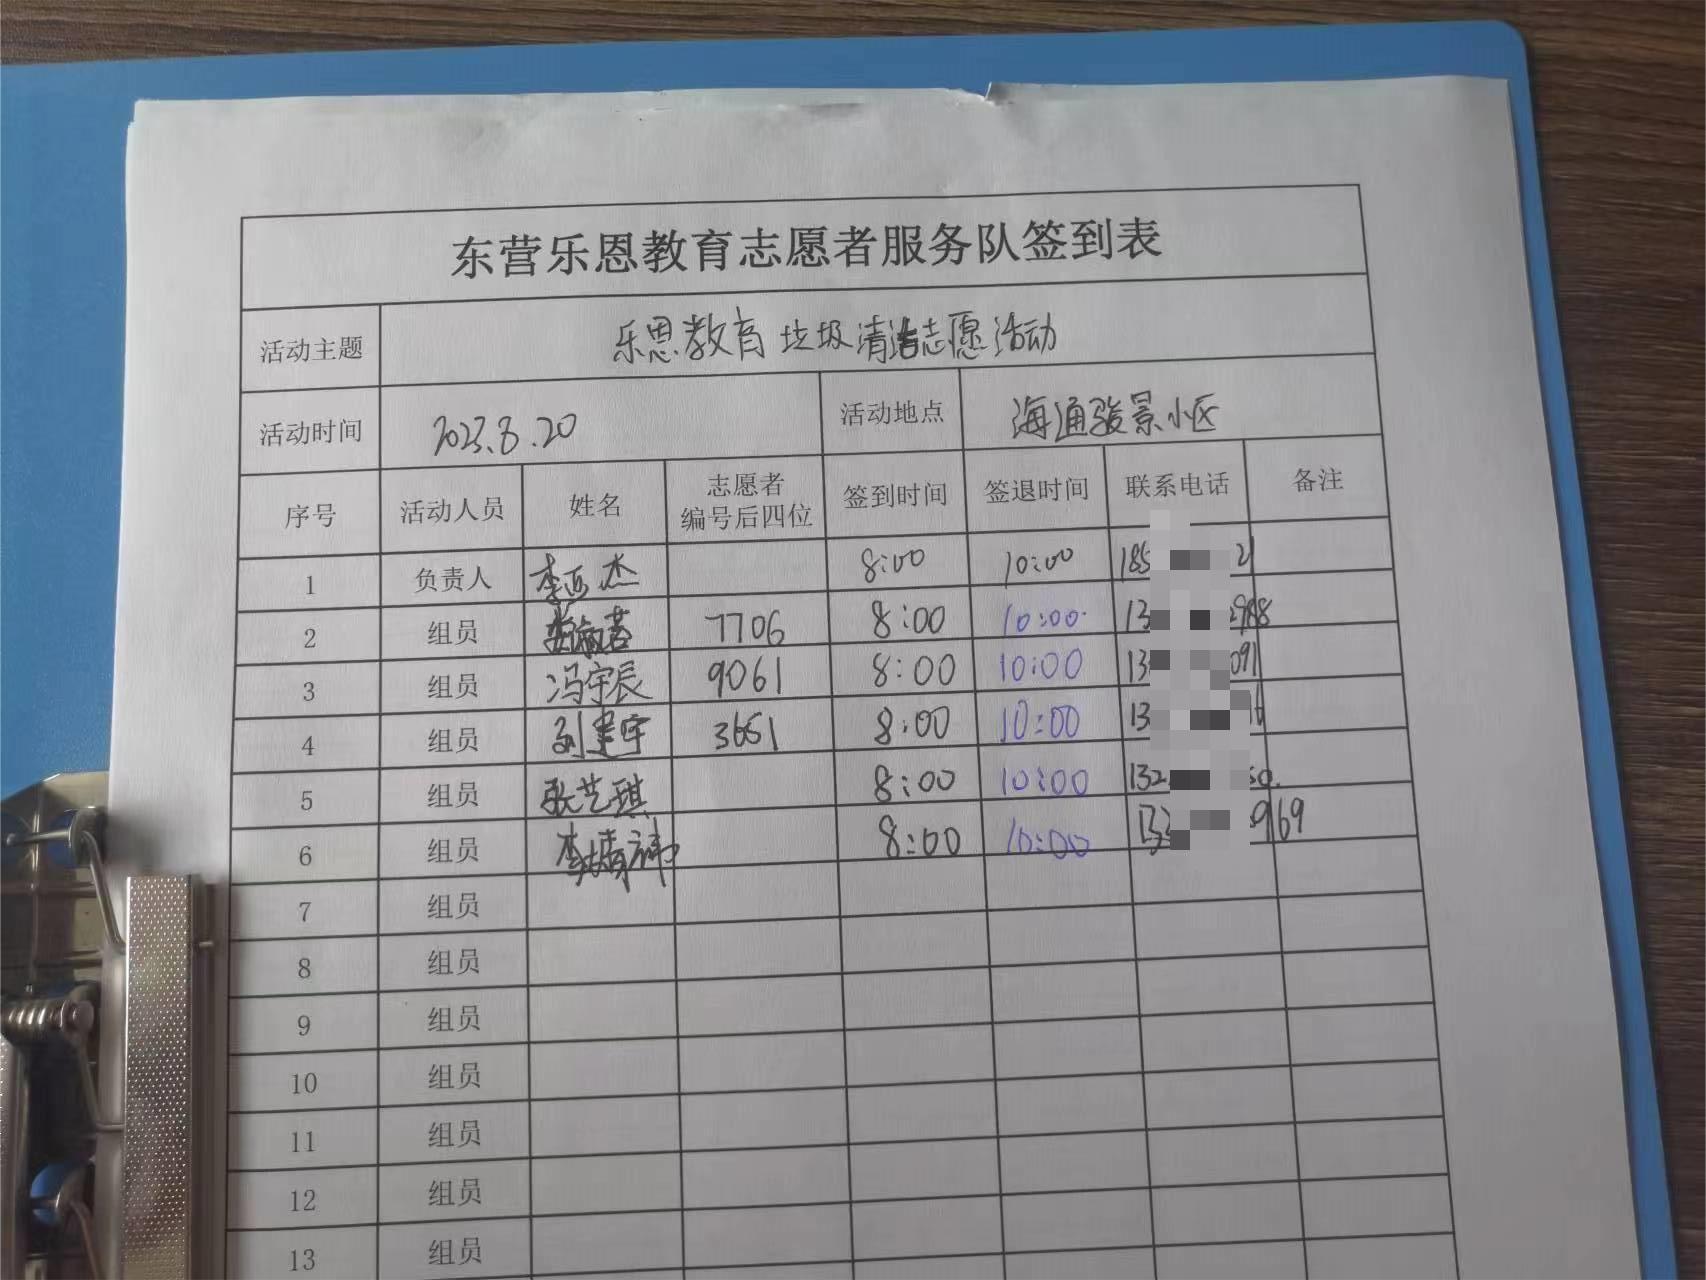 东营乐恩教育志愿者服务队签到表
活动主题 乐恩教育垃圾清洁志愿活动
活动时间 2023.8.20 活动地点 海通骏景小区
序号 活动人员 姓名 志愿者编号后四位 签到时间 签退时间 联系电话 备注
1 负责人 李亚杰 8:00 10:00 185 2
2 组员 7706 8:00 10:00 13 988
3 组员 冯宇辰 9061 8:00 10:00 13 091
4 组员 刘建宇 3651 8:00 10:00 13
5 组员 张艺琪 8:00 10:00 132 50.
6 组员 8:00 10:00 969
7 组员
8 组员
9 组员
10 组员
11 组员
12 组员
13 组员